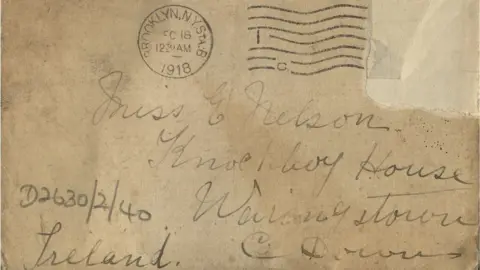 BROOKLYN, N.Y. STA.B
DEC 18
12:30 AM
1918
Miss E Nelson
Knockboy House
Waringstown
D2630/2/40
Ireland. Co Down